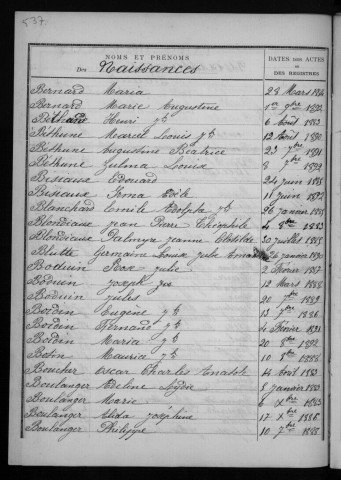 537.
NOMS ET PRÉNOMS
Des Naissances
DATES DES ACTES
ET
DES REGISTRES
Bernard Maria 28 Mars 1884
Bernard Marie Augustine 1er 9bre
Béthune Henri 6 Août 1883
Béthune Marcel Louis 12 Août 1890
Béthune Augustine Béatrice 23 7bre 1891
Béthune Zulma Louise 8 7bre 1892
Biseaux Edouard 24 Juin 1885
Biseaux Irma 11 Juin
Blanchard Emile Adolphe 26 Janvier
Blondiaux Jean Pierre Théophile 4 1883
Blondiaux Palmyre Jeanne Clotilde 30 Juillet 1885
Germaine Julie 26 Janvier
Boduin Julie Février 1887
Boduin Joseph 12 Mars 1888
Boduin Jules 20 1889
Boidin Eugène 13 7bre 1886
Boidin Fernand 4 Février 1891
Boidin Maria 20 8bre 1892
Bosn Maurice 10 8bre 1888
Boucher Oscar Charles Anatole 14 Avril 1883
Boulanger Adeline 8 Janvier 1883
Boulanger Marie 6 Xbre 1883
Boulanger Alida Joséphine 17 Xbre 1886
Boulanger Philippe 10 7bre 1888